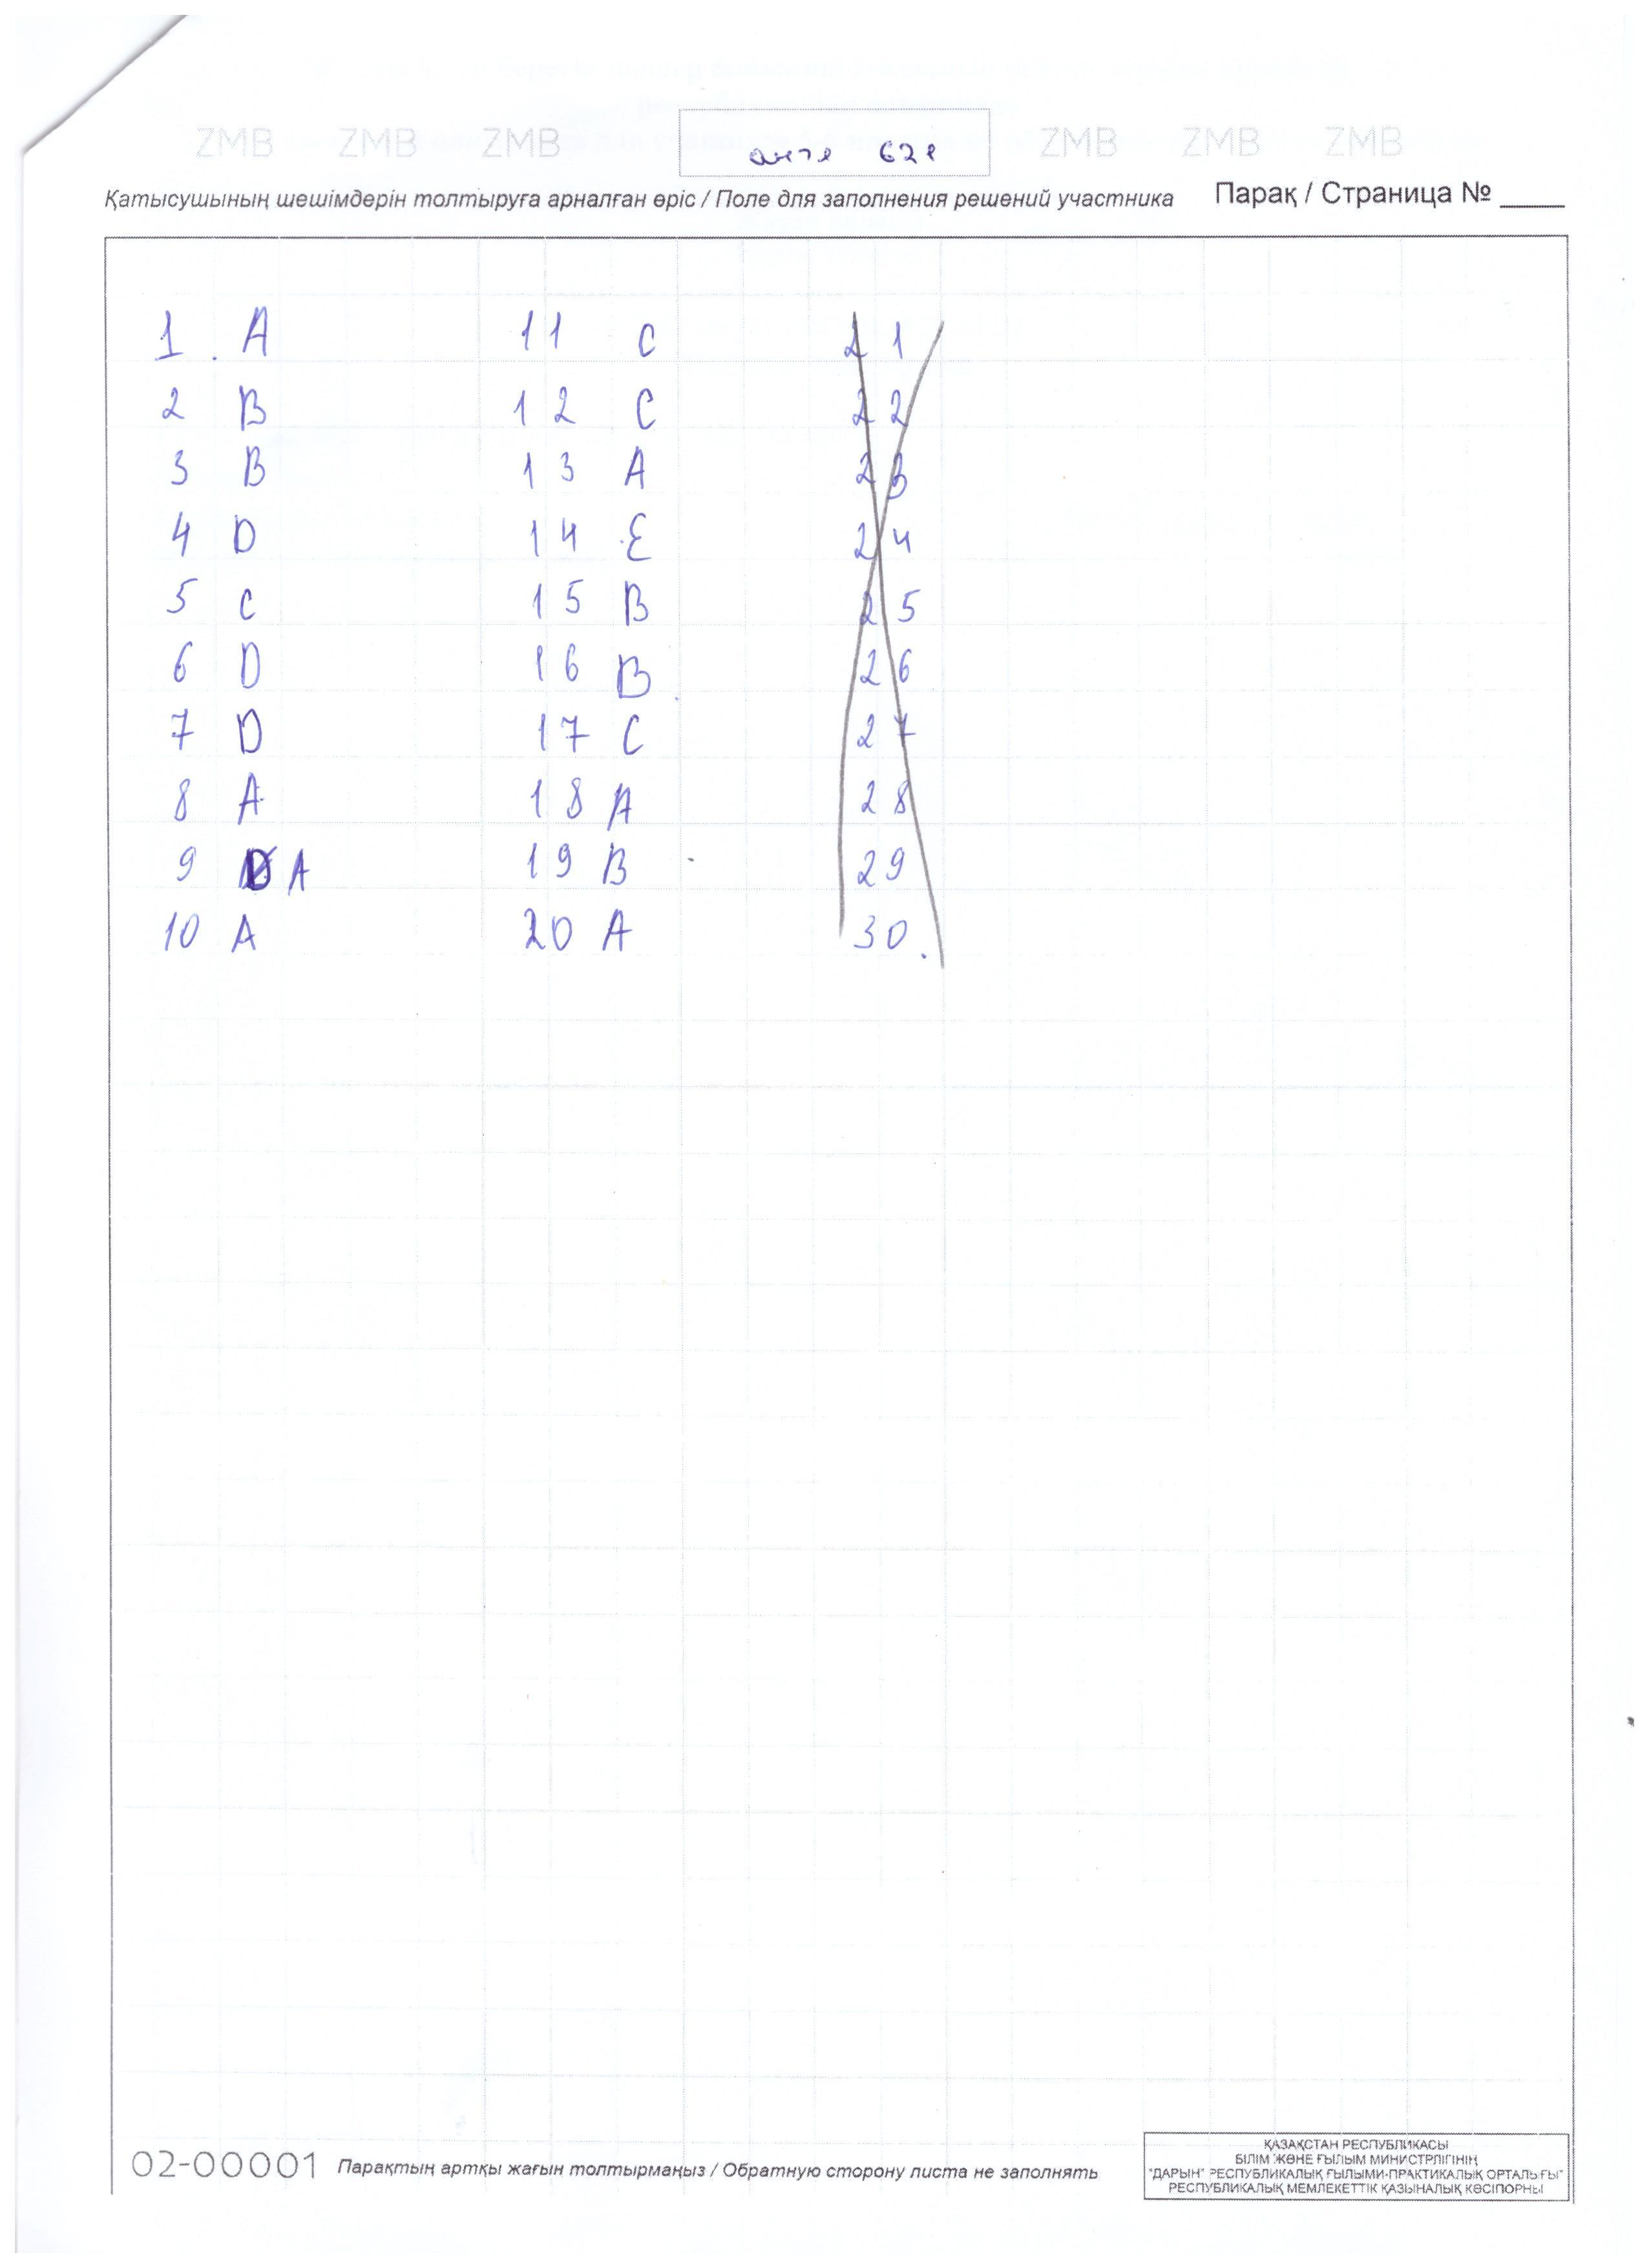 ZMB ZMB ZMB ZMB ZMB ZMB
Қатысушының шешімдерін толтыруға арналған өріс / Поле для заполнения решений участника Парақ / Страница № ____
1. A 11 C 21
2 B 12 C 22
3 B 13 A 23
4 D 14 E 24
5 C 15 B 25
6 D 16 B 26
7 D 17 C 27
8 A 18 A 28
9 D A 19 B 29
10 A 20 A 30.
02-00001 Парақтың артқы жағын толтырмаңыз / Обратную сторону листа не заполнять
ҚАЗАҚСТАН РЕСПУБЛИКАСЫ
БІЛІМ ЖӘНЕ ҒЫЛЫМ МИНИСТРЛІГІНІҢ
"ДАРЫН" РЕСПУБЛИКАЛЫҚ ҒЫЛЫМИ-ПРАКТИКАЛЫҚ ОРТАЛЫҒЫ"
РЕСПУБЛИКАЛЫҚ МЕМЛЕКЕТТІК ҚАЗЫНАЛЫҚ КӘСІПОРНЫ